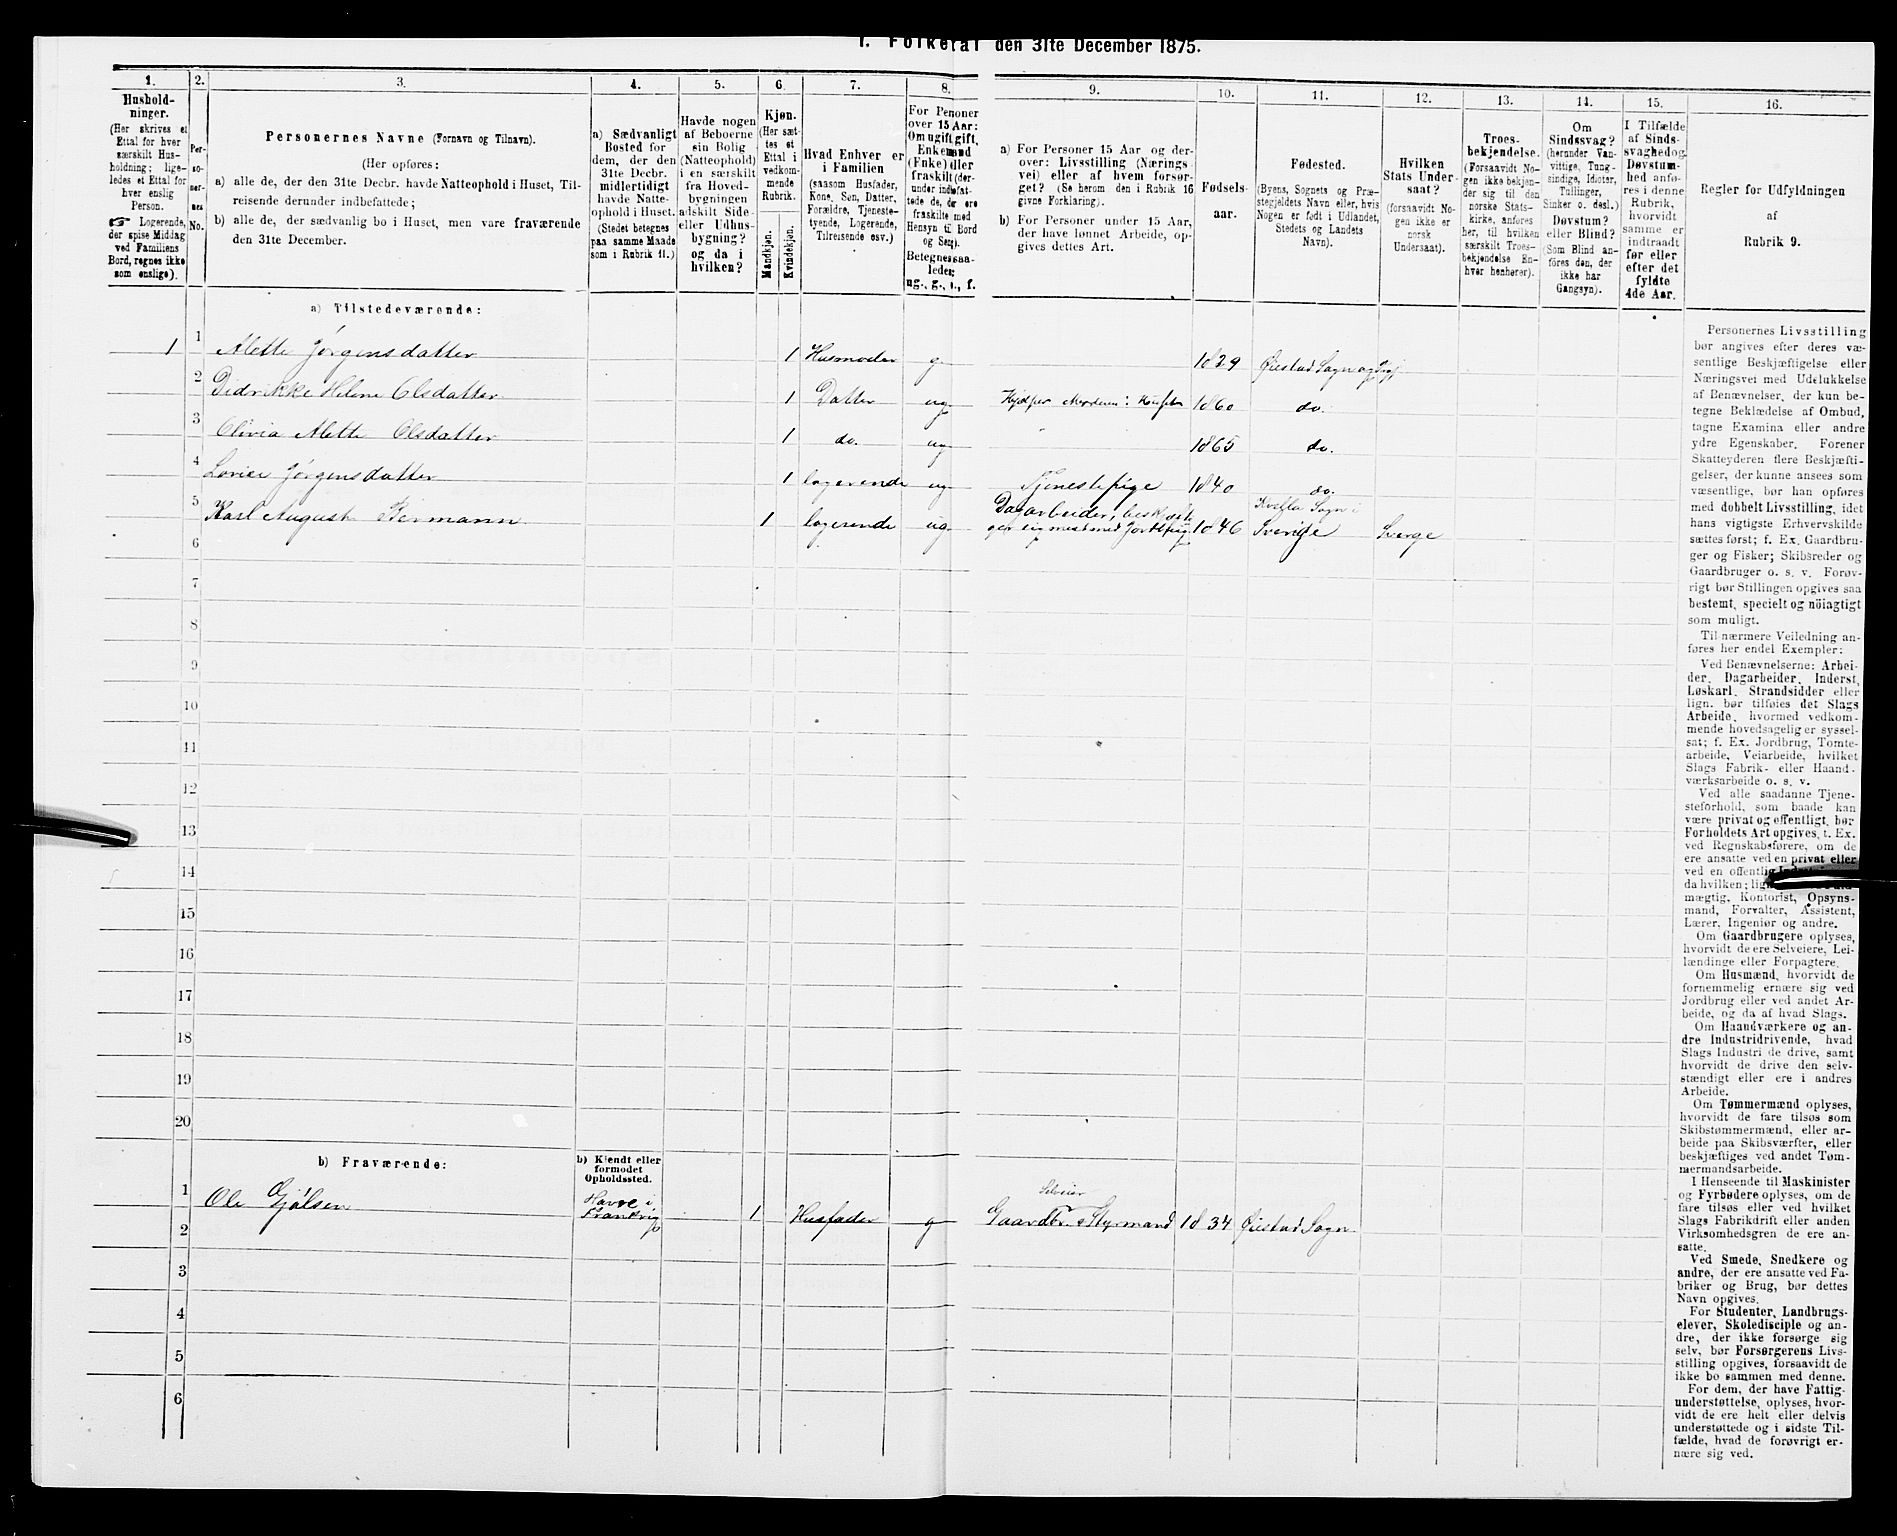 I. Folketal den 31te December 1875.
1. 2. 3. 4. 5. 6. 7. 8. 9. 10. 11. 12. 13. 14. 15. 16.
Hushold-
ninger.
(Her skrives et
Ettal for hver
særskilt Hus-
holdning; lige-
ledes et Ettal for
hver enslig
Person.
☞ Logerende,
der spise Middag
ved Familiens
Bord, regnes ikke
som enslige).
Per-
so-
ner-
nes
No.
Personernes Navne (Fornavn og Tilnavn).
(Her opføres:
a) alle de, der den 31te Decbr. havde Natteophold i Huset, Til-
reisende derunder indbefattede;
b) alle de, der sædvanlig bo i Huset, men vare fraværende
den 31te December.
a) Sædvanligt
Bosted for
dem, der den
31te Decbr.
midlertidigt
havde Natte-
ophold i Huset.
(Stedet betegnes
paa samme Maade
som i Rubrik 11.)
Havde nogen
af Beboerne
sin Bolig
(Natteophold)
i en særskilt
fra Hoved-
bygningen
adskilt Side-
eller Udhus-
bygning?
og da i
hvilken?
Kjøn.
(Her sæt-
tes et
Ettal i
vedkom-
mende
Rubrik.
Mandkjøn.
Kvindekjøn.
Hvad Enhver er
i Familien
(saasom Husfader,
Kone, Søn, Datter,
Forældre, Tjeneste-
tyende, Logerende,
Tilreisende osv.)
For Personer
over 15 Aar:
Om ugift, gift,
Enkemand
(Enke) eller
fraskilt (der-
under indbefat-
tede de, der ere
fraskilte med
Hensyn til Bord
og Seng).
Betegnes saa-
ledes:
ug., g., e., f.
a) For Personer 15 Aar og der-
over: Livsstilling (Nærings-
vei) eller af hvem forsør-
get? (Se herom den i Rubrik 16
givne Forklaring).
b) For Personer under 15 Aar,
der have lønnet Arbeide, op-
gives dettes Art.
Fødsels-
aar.
Fødested.
(Byens, Sognets og Præ-
stegjeldets Navn eller, hvis
Nogen er født i Udlandet,
Stedets og Landets
Navn).
Hvilken
Stats Under-
saat?
(forsaavidt No-
gen ikke er
norsk
Undersaat).
Troes-
bekjendelse.
(Forsaavidt No-
gen ikke bekjen-
der sig til den
norske Stats-
kirke, anføres
her, til hvilken
særskilt Troes-
bekjendelse En-
hver henhører).
Om
Sindssvag?
(herunder Van-
vittige, Tung-
sindige, Idioter,
Tullinger,
Sinker o. desl.)
Døvstum?
eller Blind?
(Som Blind an-
føres den, der
ikke har
Gangsyn).
I Tilfælde
af Sinds-
svaghed og
Døvstum-
hed anfø-
res i denne
Rubrik,
hvorvidt
samme er
indtraadt
før eller
efter det
fyldte
4de Aar.
Regler for Udfyldningen
af
Rubrik 9.
a) Tilstedeværende:
1 1 Alette Jørgensdatter 1 Husmoder g 1829 Øiestad Sogn og Prgj
2 Didrikke Helene Olsdatter 1 Datter ug Hjelper Moderen i Huset 1860 do.
3 Olivia Alette Olsdatter 1 do. ug " 1865 do.
4 Lovise Jørgensdatter 1 logerende ug Tjenestepige 1840 do.
5 Karl August Bermann 1 logerende ug Dagarbeider, beskjæfti-
ger sig mest med Jordbrug 1846 Kvilla Sogn i
Sverige Sverge
6
7
8
9
10
11
12
13
14
15
16
17
18
19
20
b) Fraværende:
b) Kjendt eller
formodet
Opholdssted.
1 Ole Gjølsen Havre i
Frankrig 1 Husfader g Selveier
Gaardbr. & Styrmand 1834 Øiestad Sogn
2
3
4
5
6
Personernes Livsstilling
bør angives efter deres væ-
sentlige Beskjæftigelse eller
Næringsvei med Udelukkelse
af Benævnelser, der kun be-
tegne Beklædelse af Ombud,
tagne Examina eller andre
ydre Egenskaber. Forener
Skatteyderen flere Beskjæfti-
gelser, der kunne ansees som
væsentlige, bør han opføres
med dobbelt Livsstilling, idet
hans vigtigste Erhvervskilde
sættes først; f. Ex. Gaardbru-
ger og Fisker; Skibsreder og
Gaardbruger o. s. v. Forøv-
rigt bør Stillingen opgives saa
bestemt, specielt og nöiagtigt
som muligt.
Til nærmere Veiledning an-
føres her endel Exempler:
Ved Benævnelserne: Arbei-
der, Dagarbeider, Inderst,
Løskarl, Strandsidder eller
lign. bør tilføies det Slags
Arbeide, hvormed vedkom-
mende hovedsagelig er syssel-
sat; f. Ex. Jordbrug, Tomte-
arbeide, Veiarbeide, hvilket
Slags Fabrik- eller Haand-
værksarbeide o. s. v.
Ved alle saadanne Tjene-
steforhold, som baade kan
være privat og offentligt, bør
Forholdets Art opgives, t. Ex.
ved Regnskabsførere, om de
ere ansatte ved en privat eller
ved en offentlig
da hvilken;
mægtig, Kontorist, Opsyns-
mand, Forvalter, Assistent,
Lærer, Ingeniør og andre.
Om Gaardbrugere oplyses,
hvorvidt de ere Selveiere, Lei-
lændinge eller Forpagtere.
Om Husmænd, hvorvidt de
fornemmelig ernære sig ved
Jordbrug eller ved andet Ar-
beide, og da af hvad Slags.
Om Haandværkere og an-
dre Industridrivende, hvad
Slags Industri de drive, samt
hvorvidt de drive den selv-
stændigt eller ere i andres
Arbeide.
Om Tømmermænd oplyses,
hvorvidt de fare tilsøs som
Skibstømmermænd, eller ar-
beide paa Skibsværfter, eller
beskjæftiges ved andet Tøm-
mermandsarbeide.
I Henseende til Maskinister
og Fyrbødere oplyses, om de
fare tilsøs eller ved hvilket
Slags Fabrikdrift eller anden
Virksomhedsgren de ere an-
satte.
Ved Smede, Snedkere og
andre, der ere ansatte ved Fa-
briker og Brug, bør dettes
Navn opgives.
For Studenter, Landbrugs-
elever, Skoledisciple og an-
dre, der ikke forsørge sig
selv, bør Forsørgerens Livs-
stilling opgives, forsaavidt de
ikke bo sammen med denne.
For dem, der have Fattig-
understøttelse, oplyses, hvor-
vidt de ere helt eller delvis
understøttede og i sidste Til-
fælde, hvad de forøvrigt er-
nære sig ved.